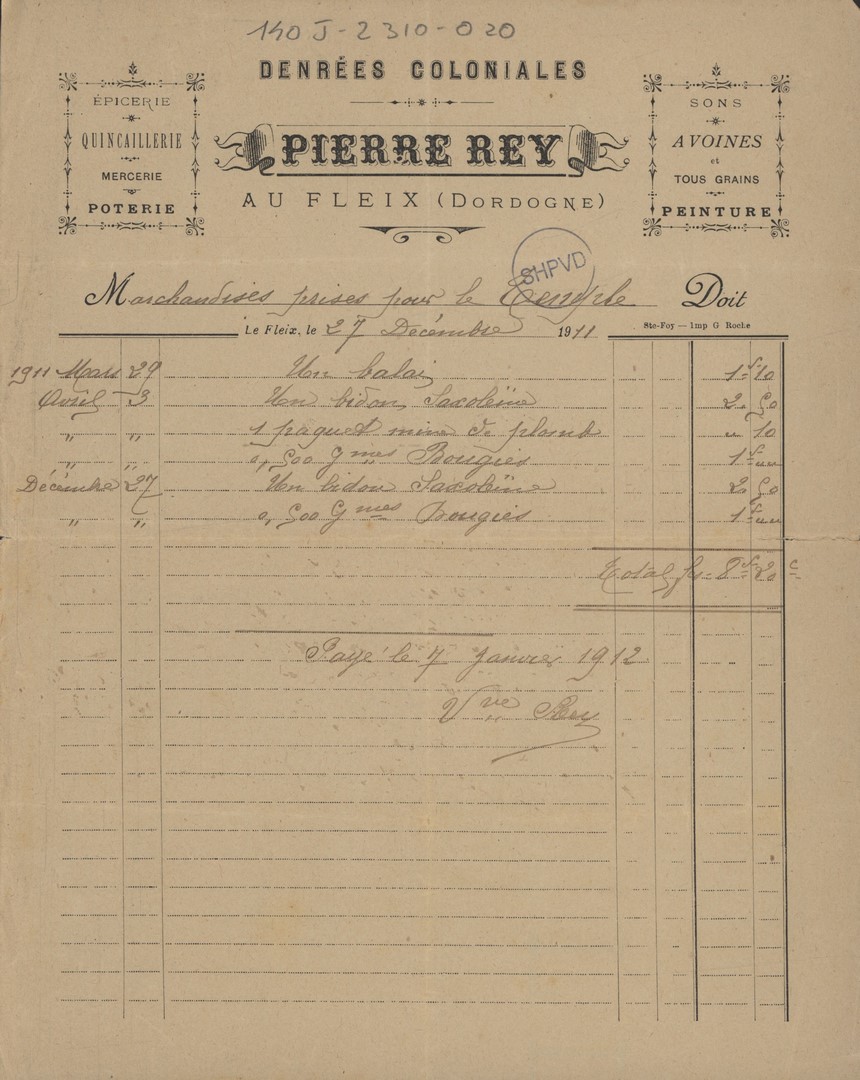 140 J-2310-020
DENRÉES COLONIALES
ÉPICERIE
QUINCAILLERIE
MERCERIE
POTERIE
PIERRE REY
AU FLEIX (DORDOGNE)
SONS
AVOINES
et
TOUS GRAINS
PEINTURE
SHPVD
Marchandises prises pour le Temple Doit
Le Fleix, le 27 Décembre 1911
Ste-Foy — Imp G Roche
1911 Mars 29 Un balai 1f 10
Avril 3 Un bidon Saxoleïne 2 50
" " 1 paquet mine de plomb " 10
" " 0,500 Gmes Bougies 1f ""
Décembre 27 Un bidon Saxoleïne 2 50
" " 0,500 Gmes Bougies 1f ""
Total fs = 8f 20 c
Payé le 7 Janvier 1912
Vve Rey